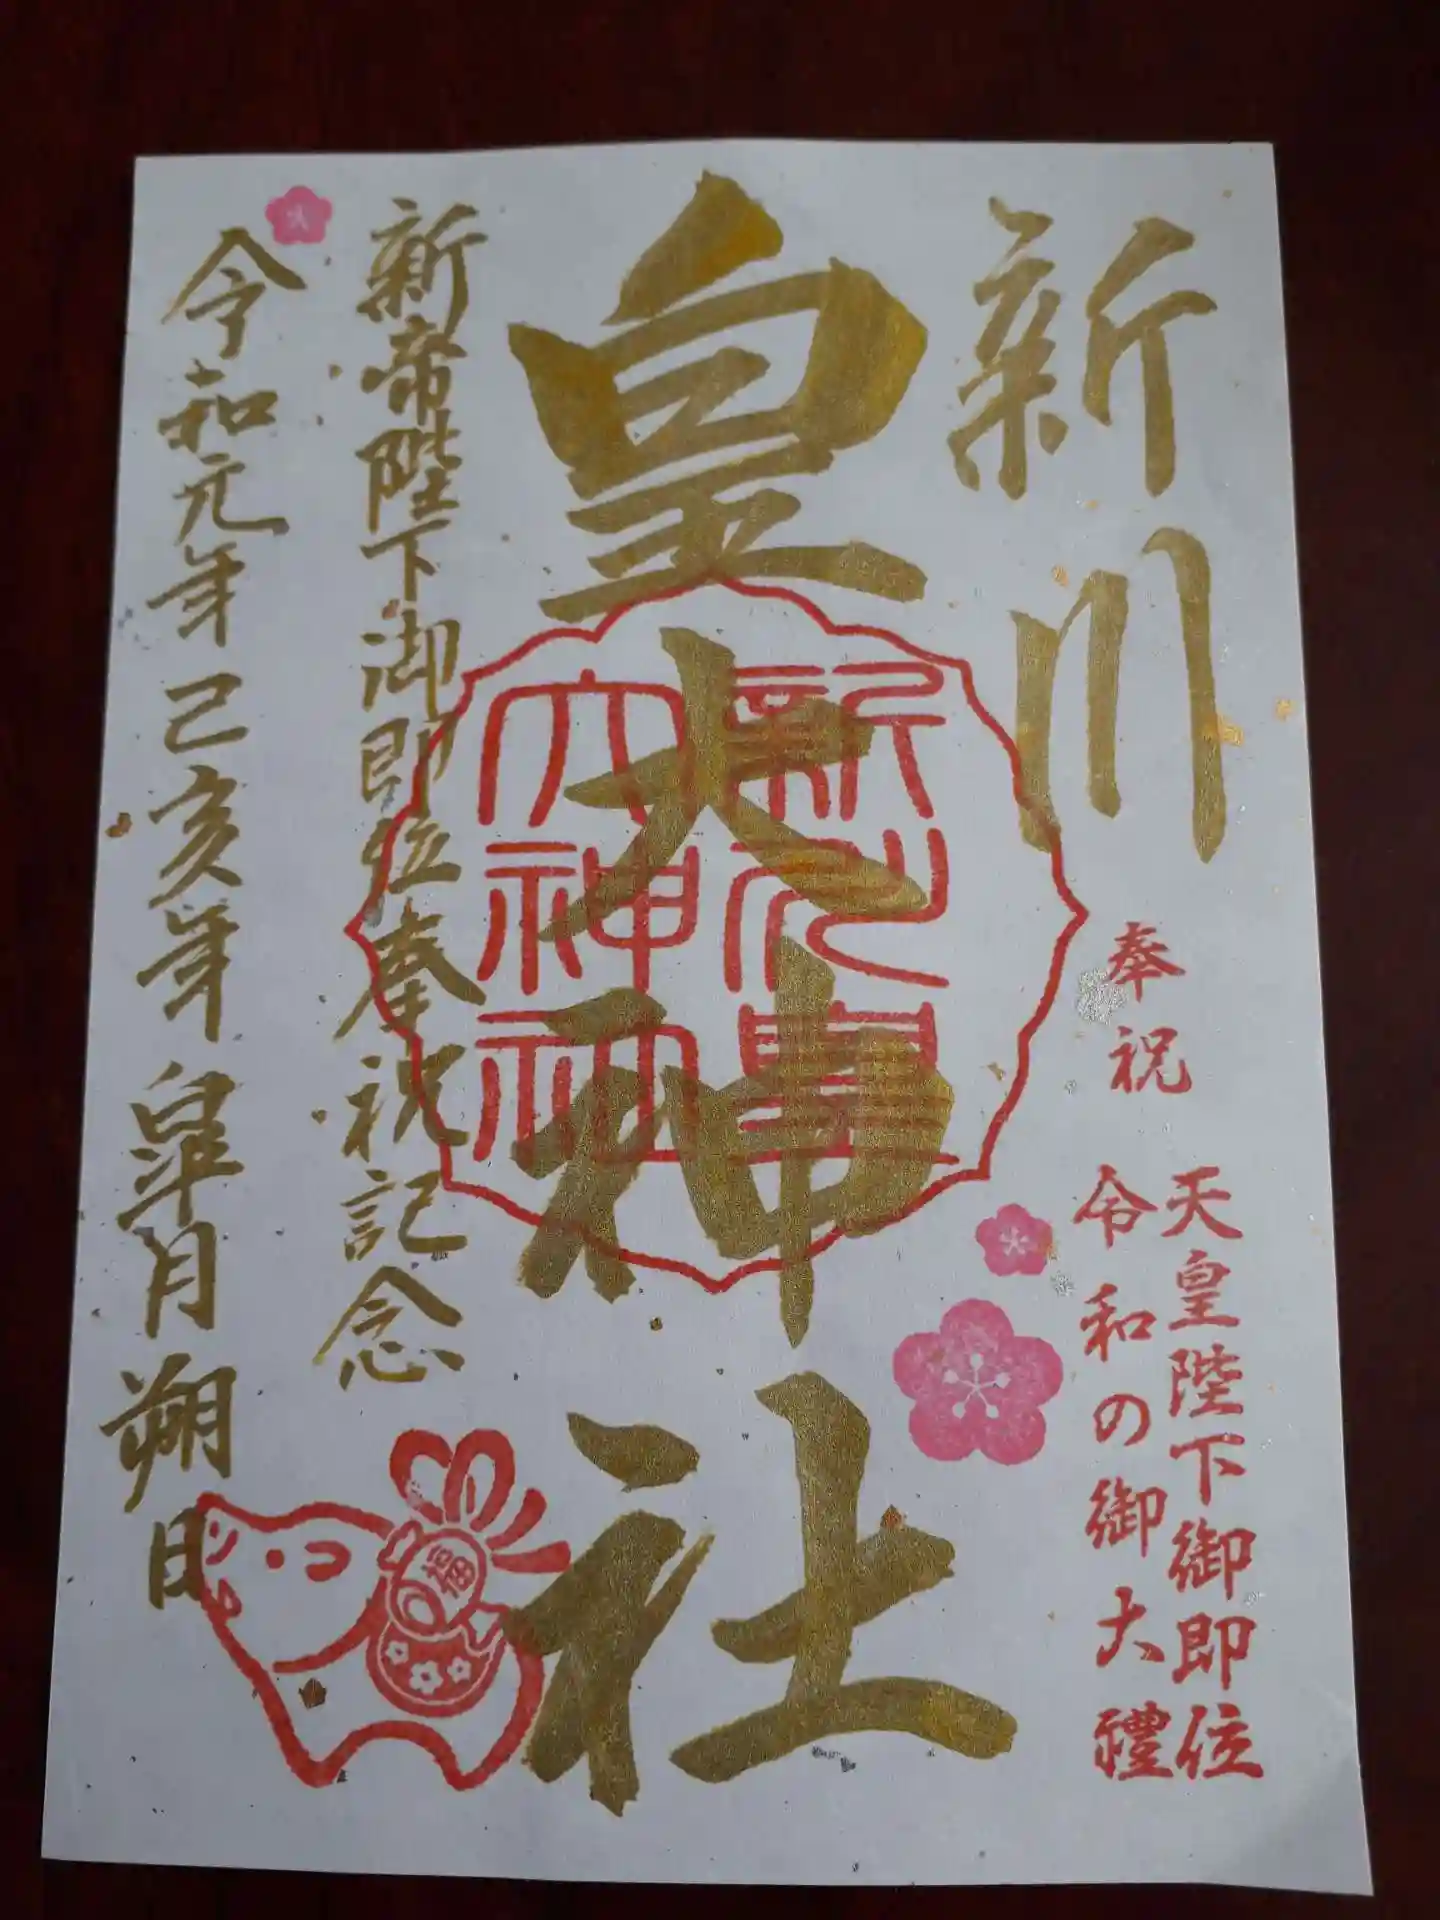 新川
皇大神社
奉祝
天皇陛下御即位
令和の御大禮
新川皇
大神社
新帝陛下御即位奉祝記念
令和元年己亥年皐月朔日
福